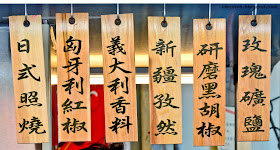 玫瑰礦鹽
研磨黑胡椒
新疆孜然
義大利香料
匈牙利紅椒
日式照燒